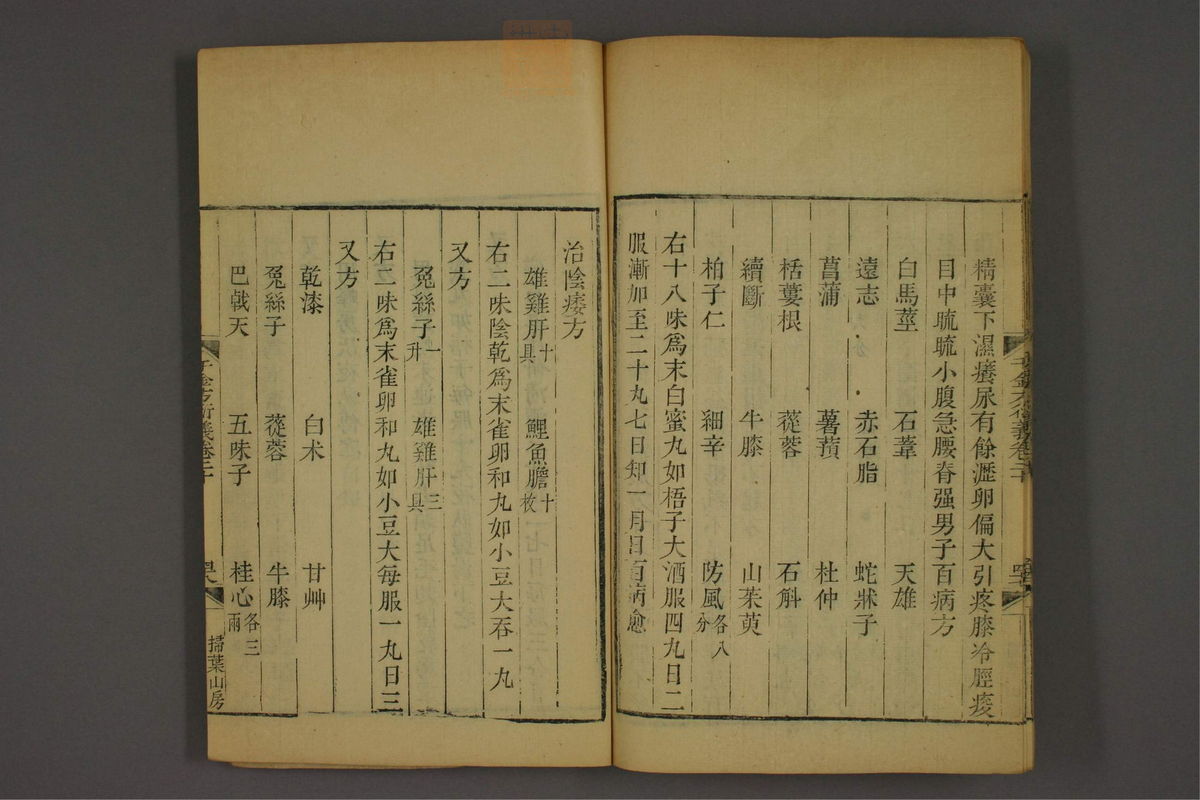 精囊下濕癢尿有餘瀝卵偏大引疼膝冷脛痠
目中䀮䀮小腹急腰脊强男子百病方
白馬莖　石葦　天雄
遠志　赤石脂　蛇牀子
菖蒲　薯蕷　杜仲
栝蔞根　蓯蓉　石斛
續斷　牛膝　山茱萸
柏子仁　細辛　防風各八分
右十八味爲末白蜜丸如梧子大酒服四丸日二
服漸加至二十丸七日知一月日百病愈
治陰痿方
雄雞肝十具　鯉魚膽十枚
右二味陰乾爲末雀卵和丸如小豆大吞一丸
又方
兔絲子一升　雄雞肝三具
右二味爲末雀卵和丸如小豆大每服一丸日三
又方
乾漆　白朮　甘艸
兔絲子　蓯蓉　牛膝
巴戟天　五味子　桂心各三兩
千金方衍義卷二十
掃葉山房